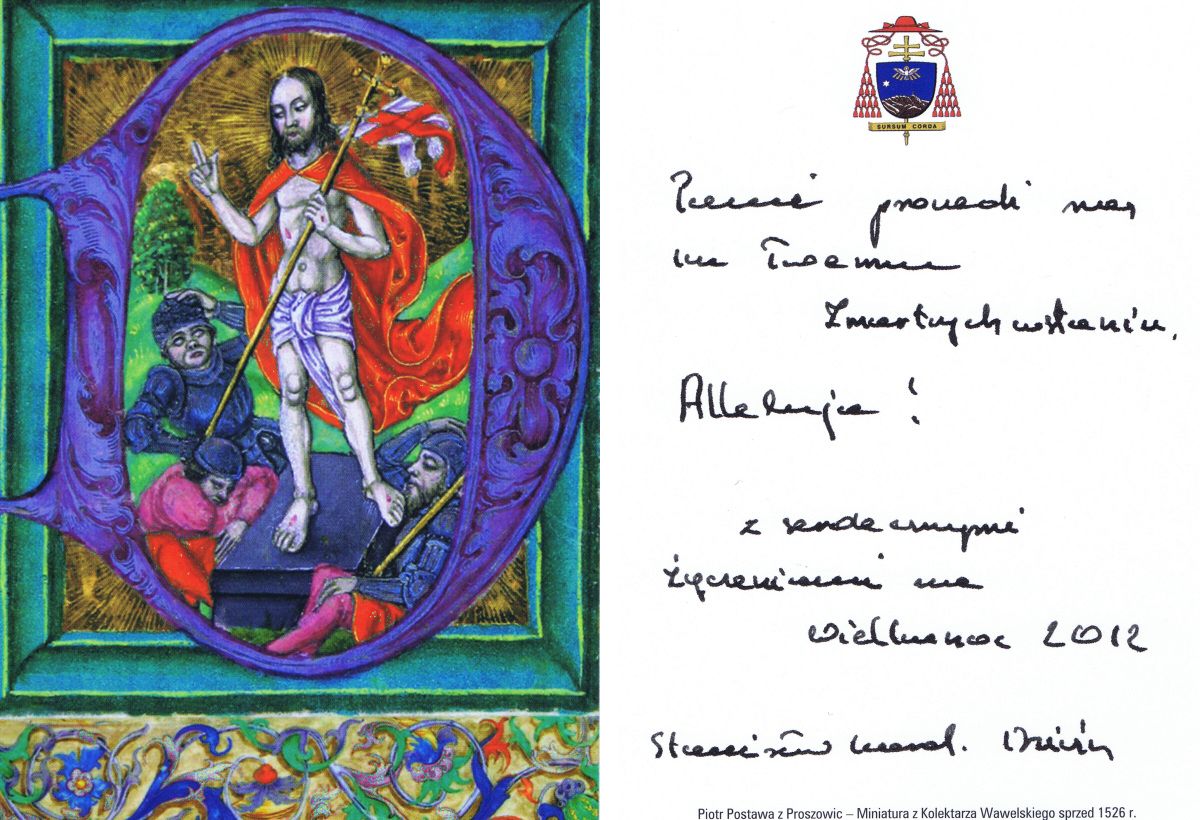 SURSUM CORDA
Panie prowadź nas
ku Twemu
Zmartwychwstaniu.
Alleluja!
z serdecznymi
życzeniami na
Wielkanoc 2012
Stanisław kard. Dziwisz
Piotr Postawa z Proszowic – Miniatura z Kolektarza Wawelskiego sprzed 1526 r.